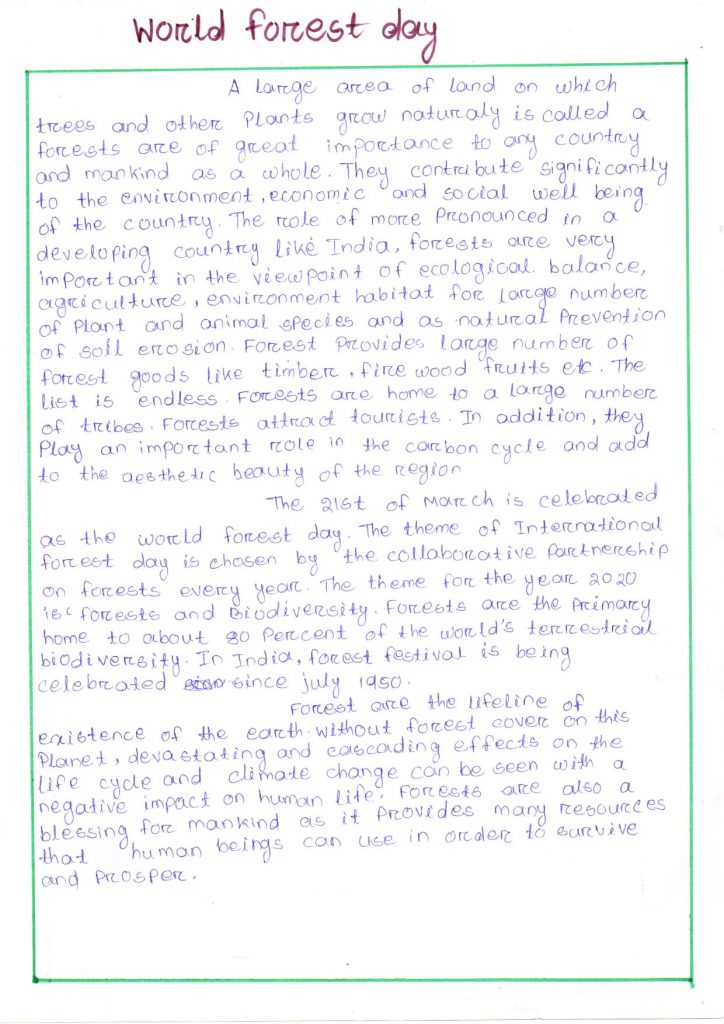 World forest day
A large area of land on which
trees and other Plants grow naturaly is called a
forests are of great importance to any country
and mankind as a whole. They contribute significantly
to the environment, economic and social well being
of the country. The role of more Pronounced in a
developing country like India, forests are very
important in the viewpoint of ecological. balance,
agriculture, environment habitat for large number
of Plant and animal species and as natural Prevention
of soil erosion. Forest Provides large number of
forest goods like timber, fire wood fruits etc. The
list is endless. Forests are home to a large number
of tribes. Forests attract tourists. In addition, they
Play an important role in the carbon cycle and add
to the aesthetic beauty of the region
The 21st of March is celebrated
as the world forest day. The theme of International
forest day is chosen by the collaborative Partnership
on forests every year. The theme for the year 2020
is forests and Biodiversity. Forests are the Primary
home to about 80 Percent of the world's terrestrial
biodiversity. In India, forest festival is being
celebrated since july 1950.
Forest are the lifeline of
existence of the earth. without forest cover on this
Planet, devastating and cascading effects on the
life cycle and climate change can be seen with a
negative impact on human life. Forests are also a
blessing for mankind as it Provides many resources
that human beings can use in order to survive
and Prosper.